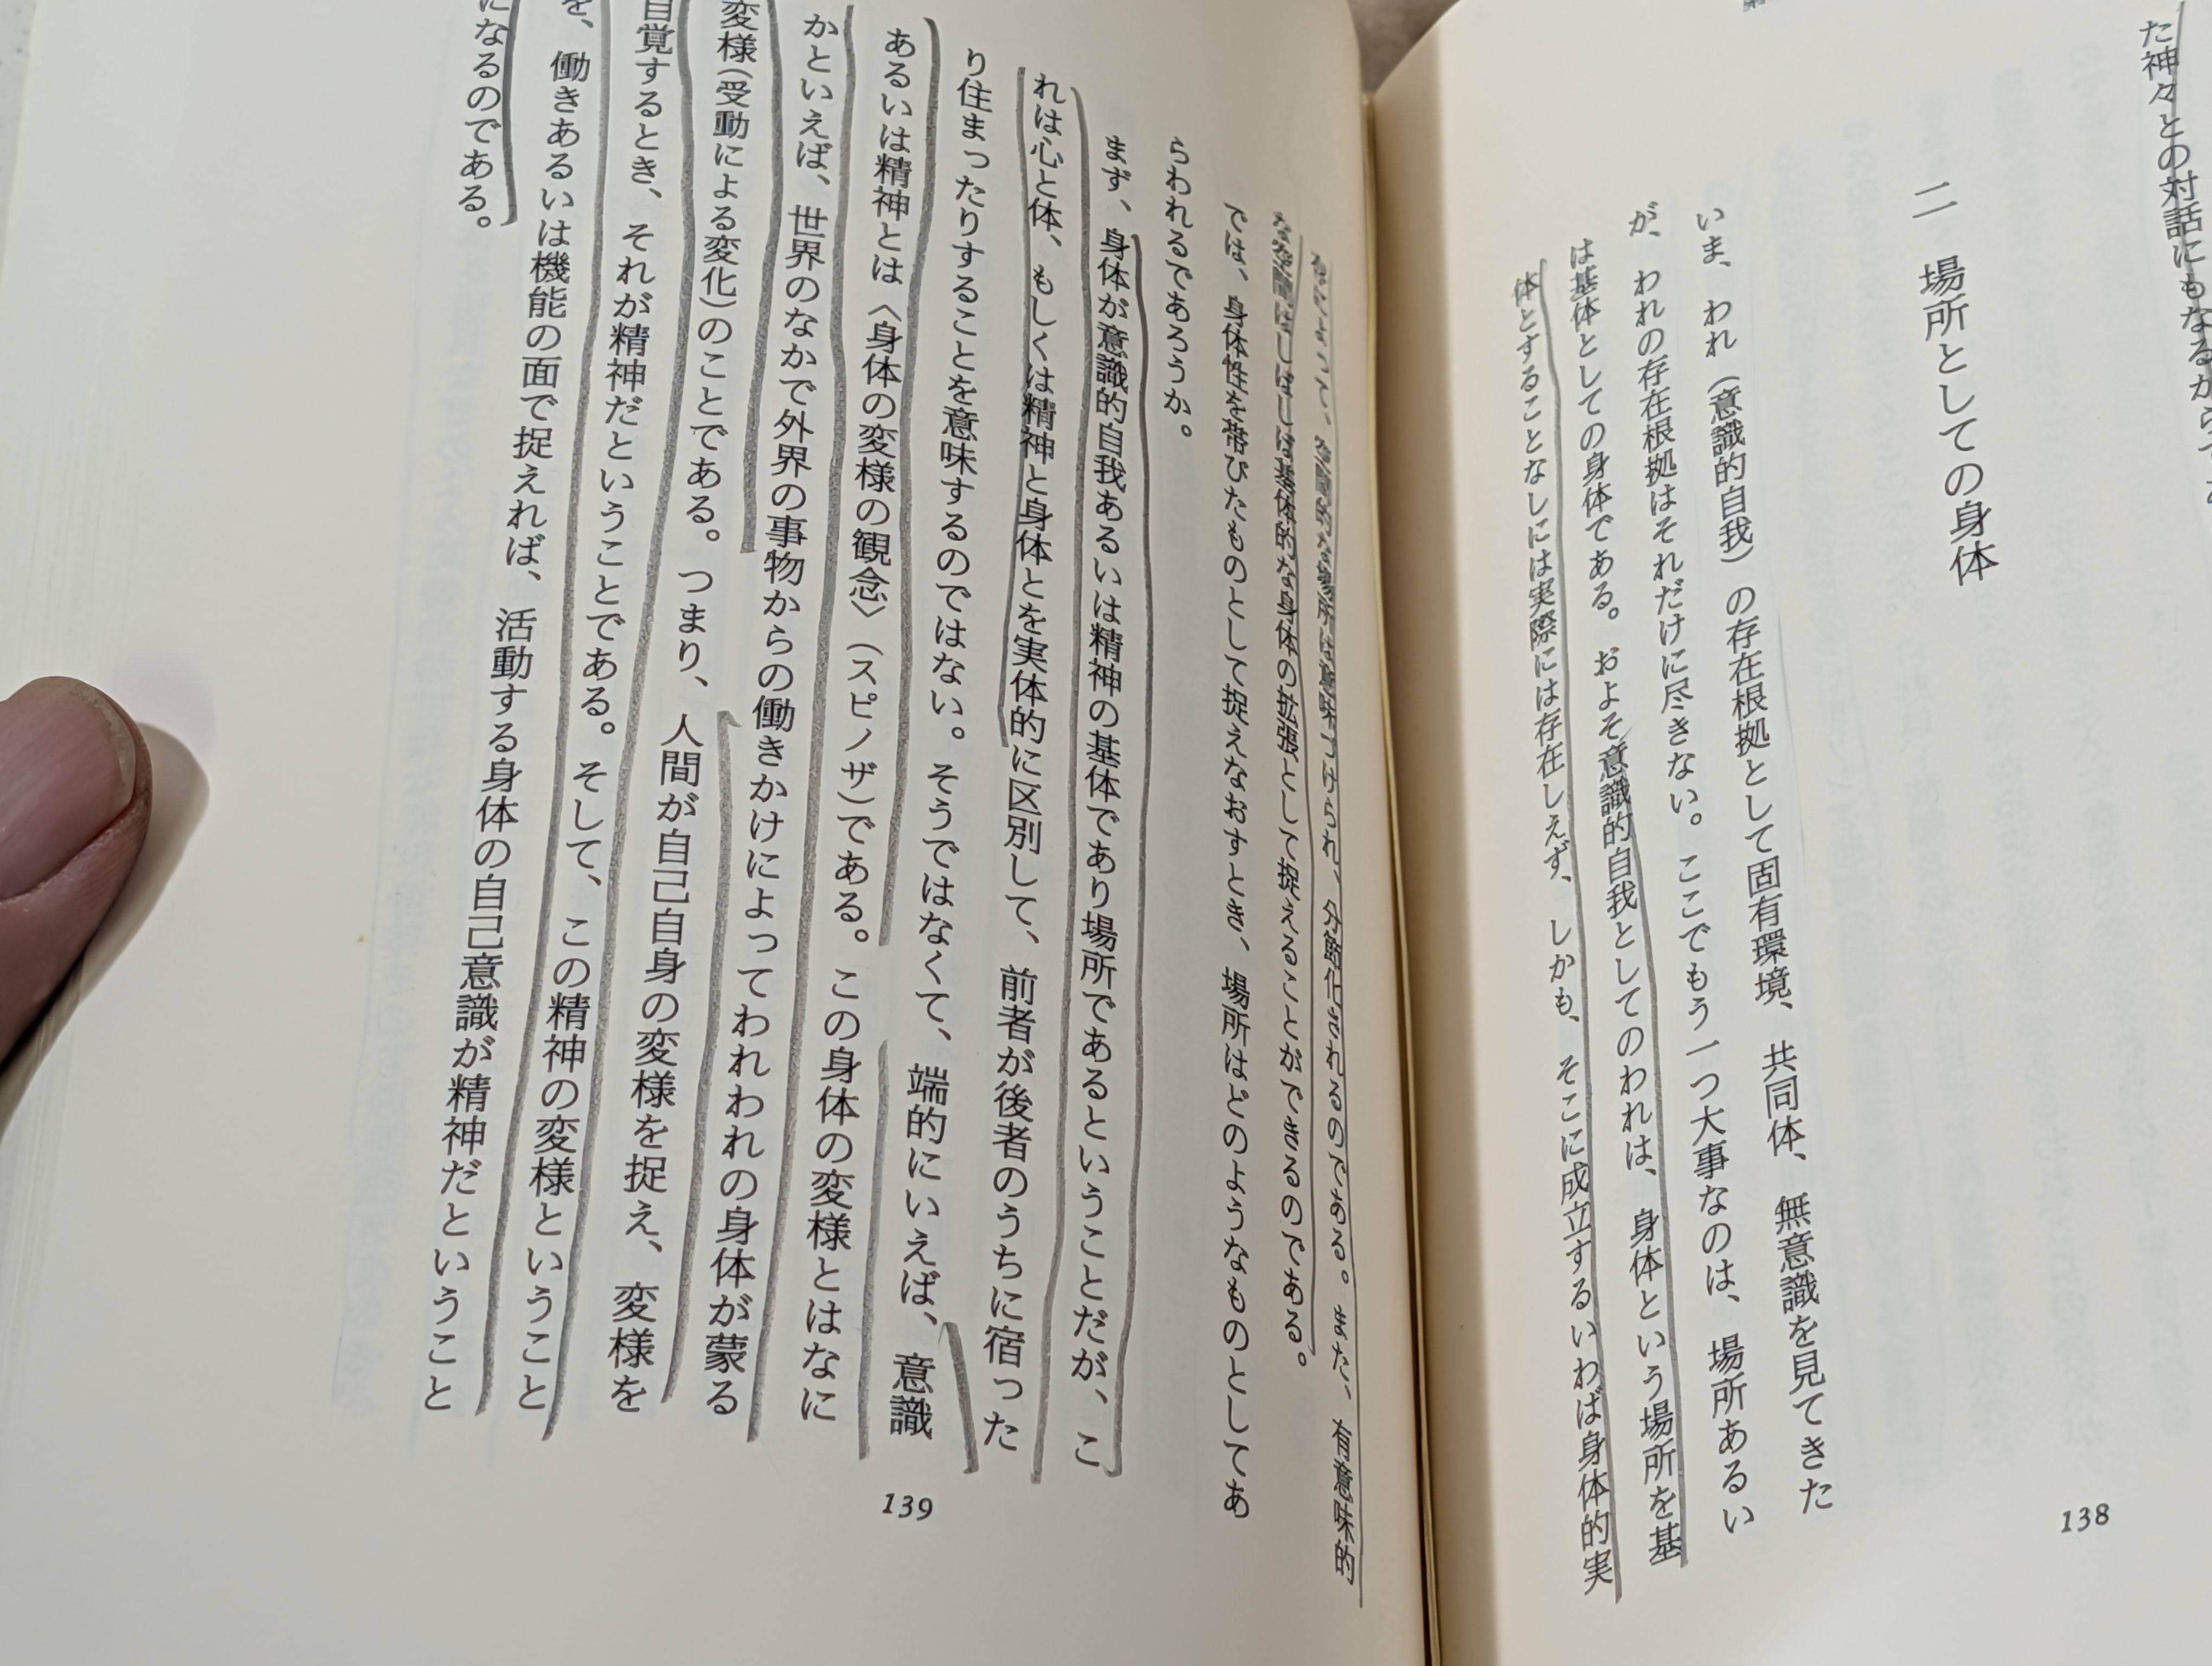 た神々との対話にもなるから
二　場所としての身体
いま、われ（意識的自我）の存在根拠として固有環境、共同体、無意識を見てきた
が、われの存在根拠はそれだけに尽きない。ここでもう一つ大事なのは、場所あるい
は基体としての身体である。およそ意識的自我としてのわれは、身体という場所を基
体とすることなしには実際には存在しえず、しかも、そこに成立するいわば身体的実
138
って、空間的な場所は意味づけられ、分節化されるのである。また、有意味的
な空間はしばしば基体的な身体の拡張として捉えることができるのである。
では、身体性を帯びたものとして捉えなおすとき、場所はどのようなものとしてあ
らわれるであろうか。
まず、身体が意識的自我あるいは精神の基体であり場所であるということだが、こ
れは心と体、もしくは精神と身体とを実体的に区別して、前者が後者のうちに宿った
り住まったりすることを意味するのではない。そうではなくて、端的にいえば、意識
あるいは精神とは〈身体の変様の観念〉（スピノザ）である。この身体の変様とはなに
かといえば、世界のなかで外界の事物からの働きかけによってわれわれの身体が蒙る
変様（受動による変化）のことである。つまり、人間が自己自身の変様を捉え、変様を
自覚するとき、それが精神だということである。そして、この精神の変様ということ
を、働きあるいは機能の面で捉えれば、活動する身体の自己意識が精神だということ
になるのである。
139